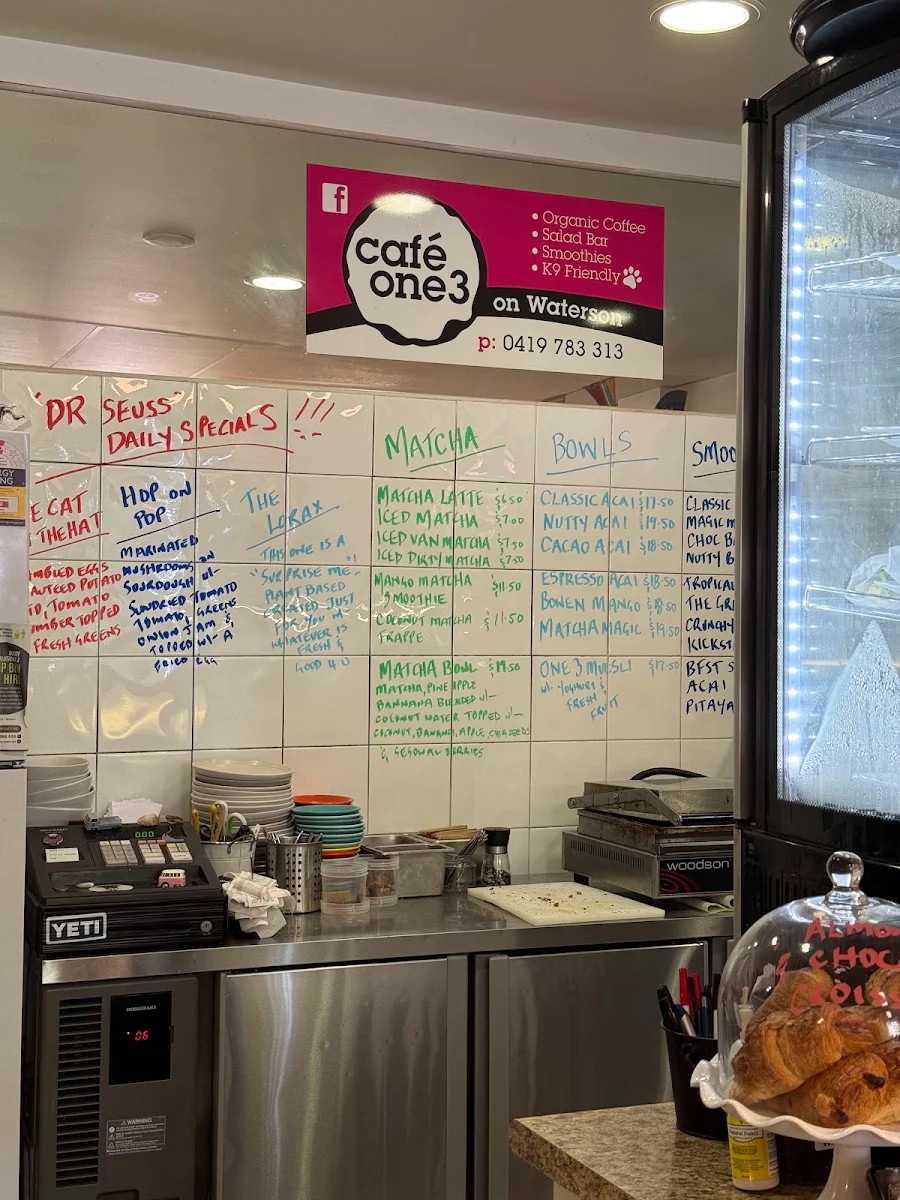 f
café
one3
• Organic Coffee
• Salad Bar
• Smoothies
• K9 Friendly
on Waterson
p: 0419 783 313
"DR SEUSS"
DAILY SPECIALS !!!
E CAT
THE HAT
MBLED EGGS
AUTEED POTATO
TOMATO
MBER TOPPED
FRESH GREENS
HOP ON
POP
MARINATED
MUSHROOMS ON
SOURDOUGH W/-
SUNDRIED TOMATO
TOMATO, GREENS
ONION JAM &
TOPPED W/- A
FRIED EGG
THE
LORAX
THIS ONE IS A
"SURPRISE ME"!
PLANT BASED
CREATED JUST
FOR YOU W/-
WHATEVER IS
FRESH &
GOOD 4 U
MATCHA
MATCHA LATTE $6.50
ICED MATCHA $7.00
ICED VAN MATCHA $7.50
ICED DIRTY MATCHA $7.50
MANGO MATCHA $11.50
SMOOTHIE
COCONUT MATCHA $11.50
FRAPPE
MATCHA BOWL $19.50
MATCHA, PINEAPPLE
BANNANA BLENDED W/-
COCONUT WATER TOPPED W/-
COCONUT, BANANA, APPLE, CHIA SEEDS
& GEGOWAL BERRIES
BOWLS
CLASSIC ACAI $17.50
NUTTY ACAI $19.50
CACAO ACAI $18.50
ESPRESSO ACAI $18.50
BOWEN MANGO $18.50
MATCHA MAGIC $19.50
ONE 3 MUESLI $17.50
W/- YOGHURT &
FRESH
FRUIT
SMOO
CLASSIC
MAGIC M
CHOC B
NUTTY B
TROPICAL
THE GR
CRUNCHY
KICKS
BEST S
ACAI
PITAYA
YETI
HOSHIZAKI
06
WARNING
woodson
ALMO
& CHOC
CROISS